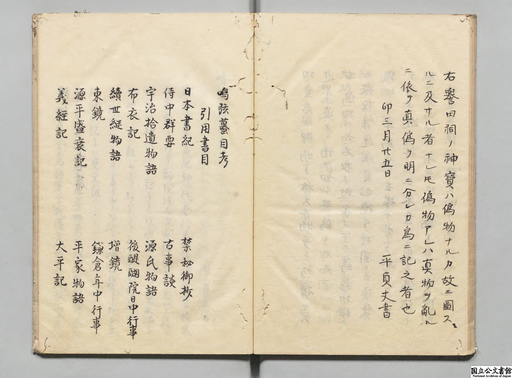 右誉田祠ノ神宝ハ偽物ナルカ故ニ図ス
ルニ及ナル者ナレ𪜈偽物アレハ真物ヲ乱ル
ニ依テ真偽ヲ明ニ分ンカ為ニ記之者也
卯三月廿五日
平貞丈書
鳴弦蟇目考
引用書目
日本書紀 禁秘御抄
侍中群要 古事談
宇治拾遺物語 源氏物語
布衣記 後醍醐院日中行事
続世継物語 増鏡
東鏡 鎌倉年中行事
源平盛衰記 平家物語
義経記 太平記
国立公文書館
National Archives of Japan